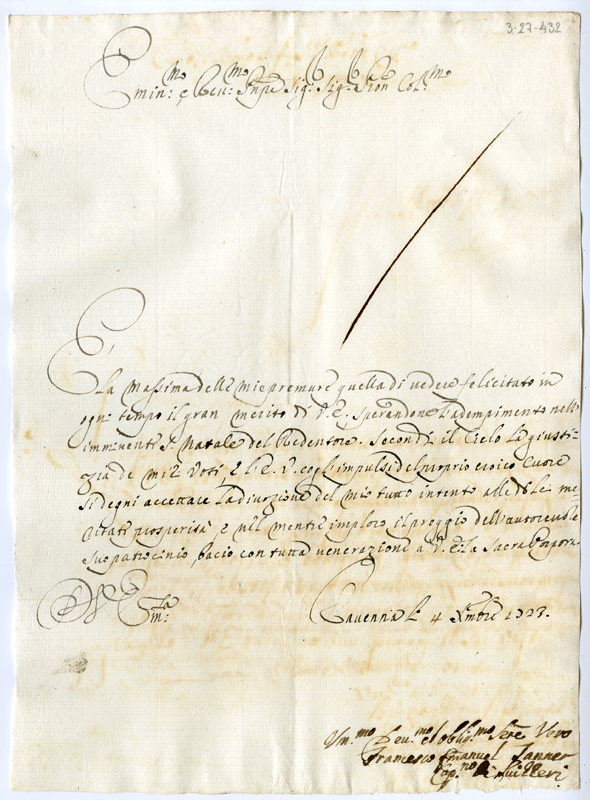 3-27-432
Emin:mo e Reu:mo Sig:r Sig:r Pron Col:mo
È la massima delle mie premure quella di vedere felicitato in
ogni tempo il gran merito di V. E. sperandone l'adempimento nell'
imminente S. Natale del Redentore. Secondi il Cielo la giusti=
zia de miei Voti, e l'E. V. cogl'impulsi del proprio eroico Cuore
si degni accettare la divozione del mio tutto intento alle di lei me=
ritate prosperità, e nel mentre imploro il preggio dell'autoreuole
suo patrocinio, bacio con tutta venerazione a V. E. la Sacra Porpora
D. V. Em:za
Rauenna li 4 Xmbre 1723.
Um.mo Deu.mo et Obblig.mo Serre Vero
Francesco Emanuel Janner
Cap.no